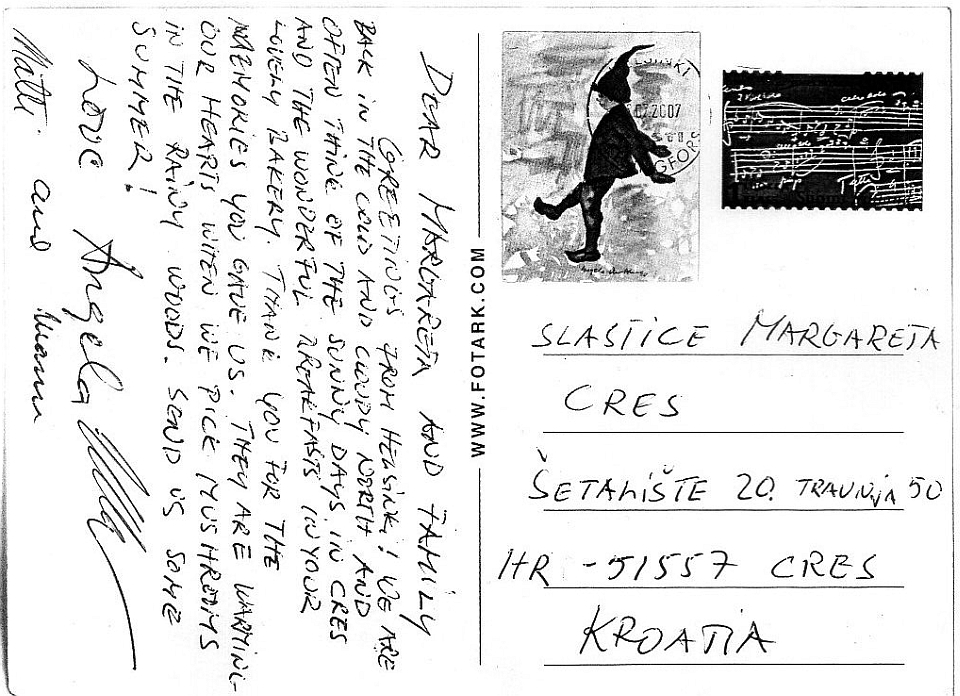 DEAR MARGARETA AND FAMILY
GREETINGS FROM HELSINKI! WE ARE
BACK IN THE COLD AND CLOUDY NORTH AND
OFTEN THINK OF THE SUNNY DAYS IN CRES
AND THE WONDERFUL BREAKFASTS IN YOUR
LOVELY BAKERY. THANK YOU FOR THE
MEMORIES YOU GAVE US. THEY ARE WARMING
OUR HEARTS WHEN WE PICK MUSHROOMS
IN THE RAINY WOODS. SEND US SOME
SUMMER!
LOVE Angela
Matti and
WWW.FOTARK.COM
2007
SLASTICE MARGARETA
CRES
ŠETALIŠTE 20. TRAVNJA 50
HR -51557 CRES
KROATIA